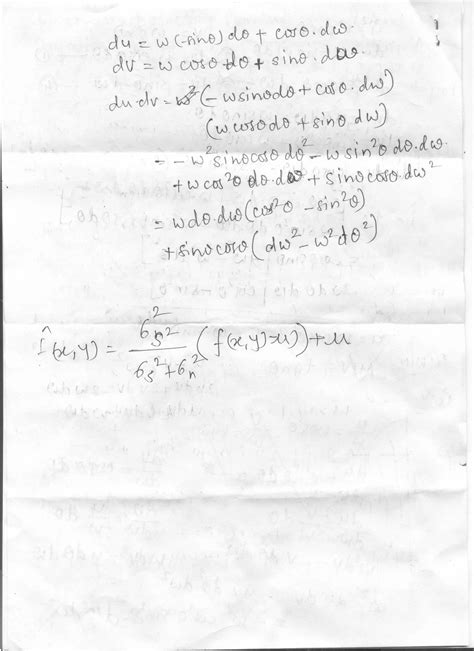 du = w(-sinθ) dθ + cosθ. dw.
dv = w cosθ dθ + sinθ. dw
du·dv = (-w sinθ dθ + cosθ. dw)
(w cosθ dθ + sinθ dw)
= -w² sinθ cosθ dθ² - w sin²θ dθ. dw.
+ w cos²θ dθ. dw + sinθ cosθ. dw²
= w dθ. dw (cos²θ - sin²θ)
+ sinθ cosθ (dw² - w² dθ²)
f̂(x,y) = σs² / (σs² + σn²) (f(x,y) - μ) + μ